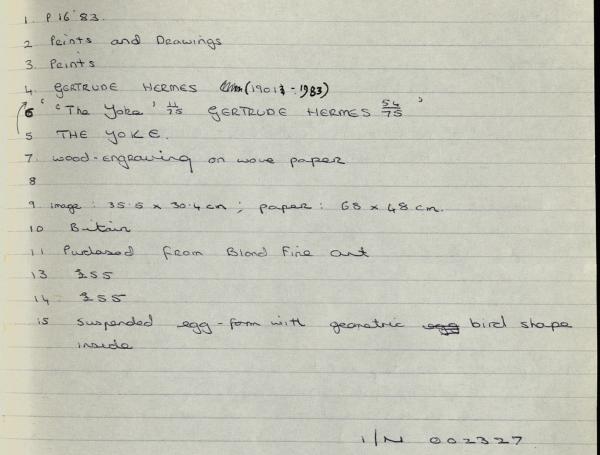 1. P.16'83.
2 Prints and Drawings
3. Prints
4. GERTRUDE HERMES (1901 - 1983)
6 ' 'The Yoke' 11/75 GERTRUDE HERMES 54/75 '
5 THE YOKE.
7. wood-engraving on wove paper
8
9 image: 35.5 x 30.4 cm; paper: 68 x 48 cm.
10 Britain
11 Purchased from Blond Fine Art
13 £55
14 £55
15 suspended egg-form with geometric egg bird shape
inside
I/N 002327